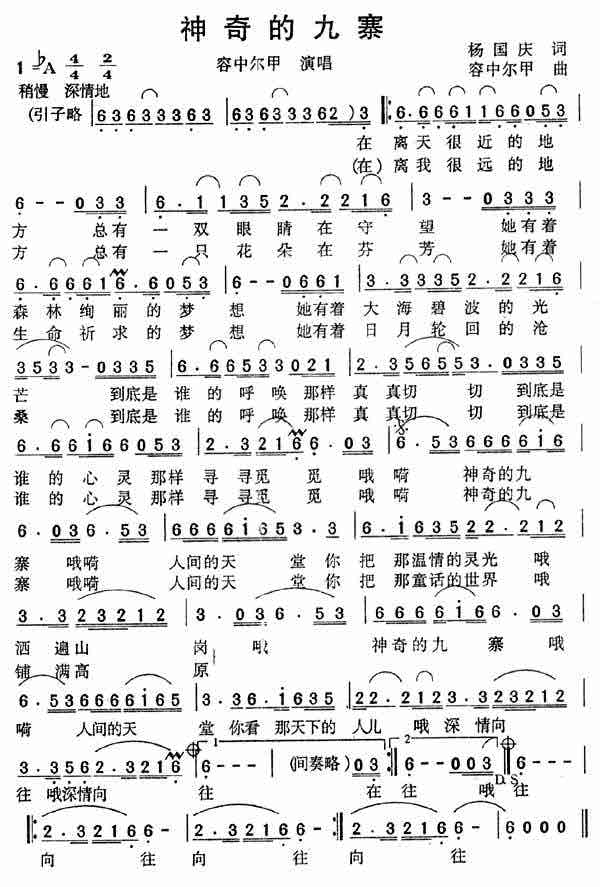 神奇的九寨
1=♭A 4/4 2/4 容中尔甲 演唱 杨国庆 词
稍慢 深情地 容中尔甲 曲
(引子略 63633363 633633362 2)3 6.6661166053
在离天很近的地
(在)离我很远的地
6--033 6.11352.2216 3--0333
方 总有一双眼睛在守望 她有着
方 总有一只花朵在芬芳 她有着
6.66616.6053 6--0661 3.33352.2216
森林绚丽的梦想 她有着大海碧波的光
生命祈求的梦想 她有着日月轮回的沧
3533-0335 6.66533021 2.356553.0335
芒 到底是谁的呼唤那样真真切切 到底是
桑 到底是谁的呼唤那样真真切切 到底是
6.66166053 2.32166.033 6.5366616
谁的心灵那样寻寻觅觅 哦嗬 神奇的九
谁的心灵那样寻寻觅觅 哦嗬 神奇的九
6.036.53 66661653.3 6.163522.212
寨 哦嗬 人间的天堂你把那温情的灵光哦
寨 哦嗬 人间的天堂你把那童话的世界哦
3.3232212 3.036.53 6666166.03
洒遍山岗 哦 神奇的九寨哦
铺满高原
6.536666165 3.36.1635 22.2123.323212
嗬 人间的天堂你看那天下的人儿 哦深情向
3.3562.3216 6--- (间奏略)03 6--003 6---
往 哦深情向往 在 往 哦 往
D.S.
2.323216 6- 2.323216 6- 2.323216 6- 6000
向 往 向 往 向 往